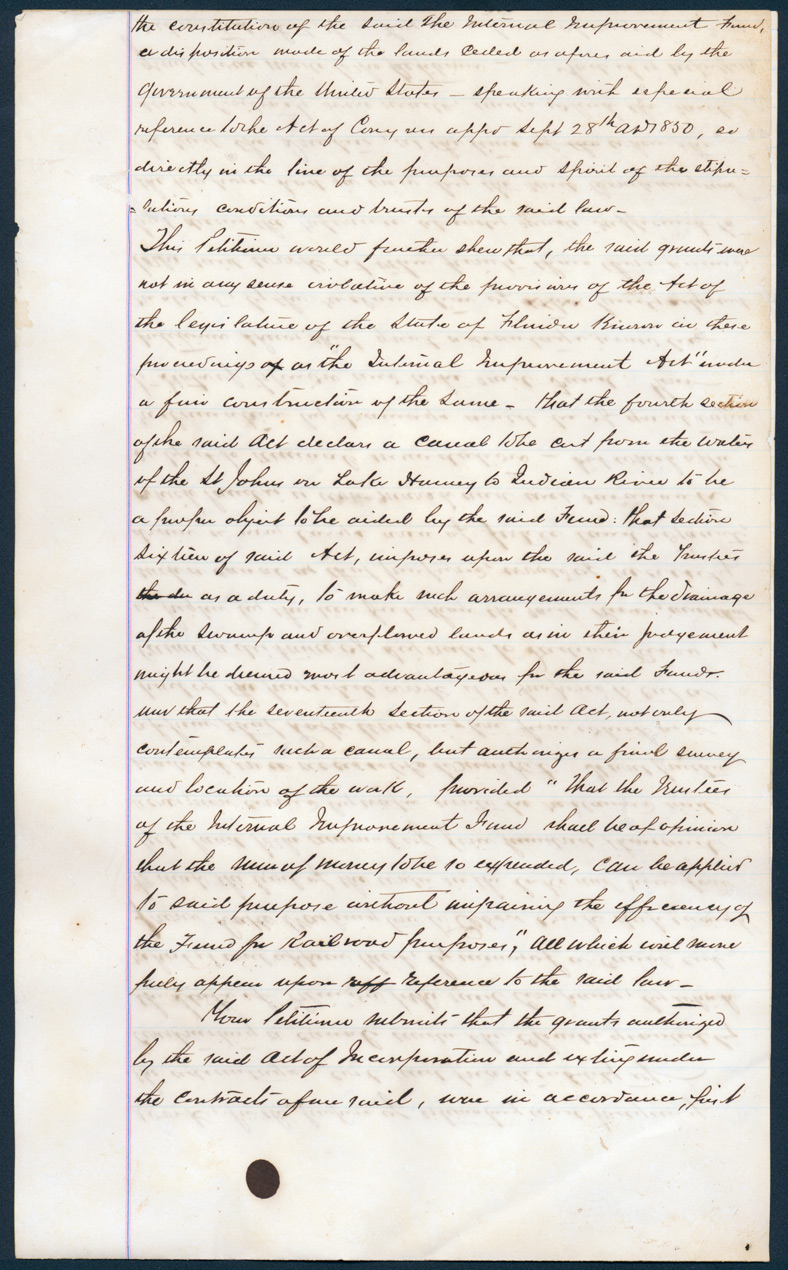 the constitution of the said The Internal Improvement Fund,
a disposition made of the lands ceded as afores aid by the
Government of the United States — speaking with especial
reference to the Act of Congress appd Sept 28th AD 1850, so
directly in the line of the purposes and spirit of the stipu=
=lations conditions and trusts of the said law —
This Petitioner would further shew that, the said grants were
not in any sense violative of the provisions of the Act of
the legislature of the State of Florida Known in these
proceedings as "the Internal Improvement Act" under
a fair construction of the same — that the fourth section
of the said Act declares a canal to be cut from the waters
of the St Johns on Lake Harney to Indian River to be
a proper object to be aided by the said Fund: that section
sixteen of said Act, imposes upon the said the Trustees
as a duty, to make such arrangements for the drainage
of the swamp and overflowed lands as in their judgement
might be deemed most advantageous for the said Fund.
and that the seventeenth section of the said Act, not only
contemplates such a canal, but authorizes a final survey
and location of the work, provided "That the Trustees
of the Internal Improvement Fund shall be of opinion
that the sum of money to be so expended, can be applied
to said purpose without impairing the efficiency of
the Fund for Railroad purposes", all which will more
fully appear upon reff reference to the said law —
Your Petitioner submits that the grants authorized
by the said Act of Incorporation and existing under
the contracts afore said, were in accordance, first